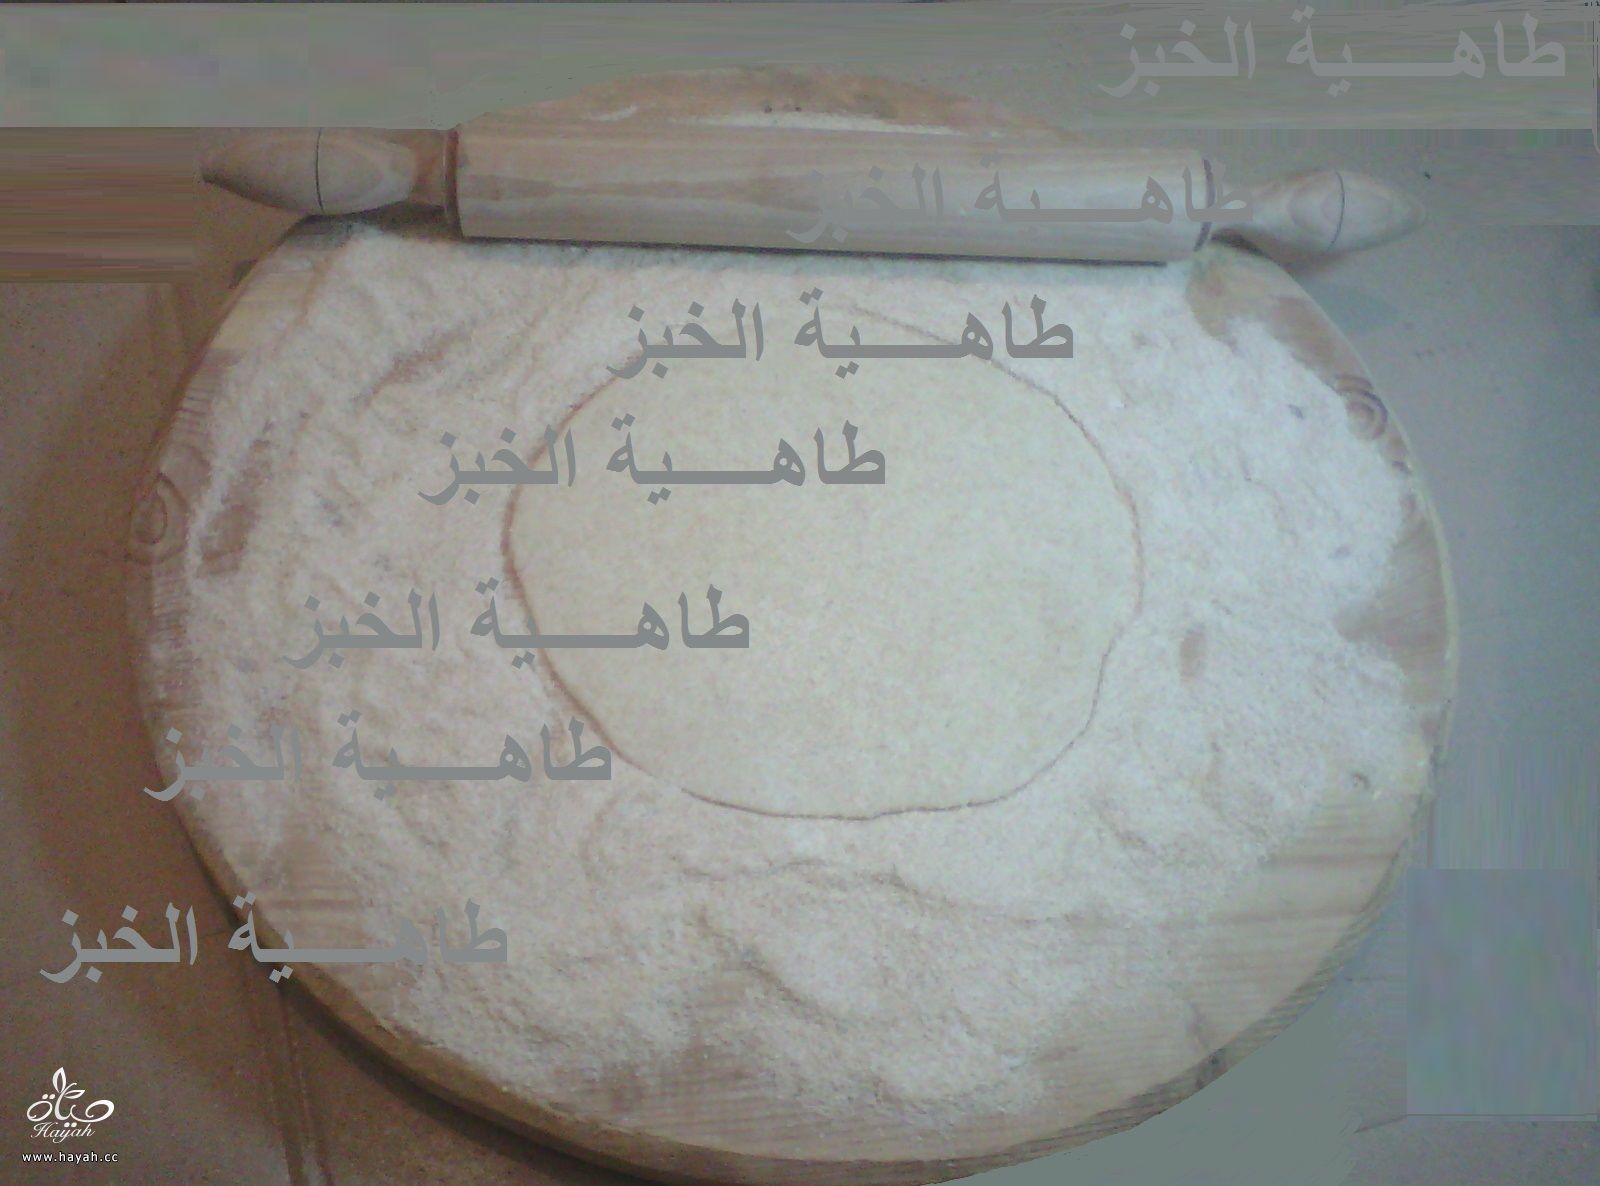 طاهـــــية الخبز
طاهـــــية الخبز
طاهـــــية الخبز
طاهـــــية الخبز
طاهـــــية الخبز
طاهـــــية الخبز
طاهـــــية الخبز
حياة
Hayah
www.hayah.cc